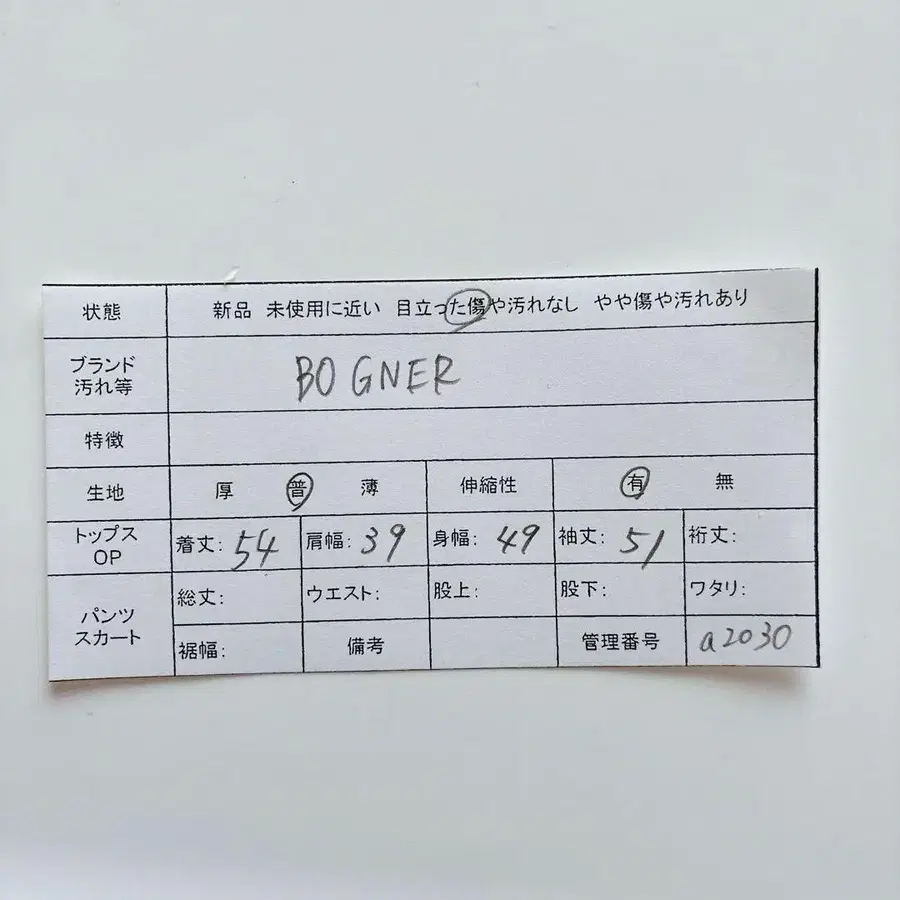 状態 新品 未使用に近い 目立った傷や汚れなし やや傷や汚れあり
ブランド
汚れ等
BOGNER
特徴
生地 厚 普 薄 伸縮性 有 無
トップス
OP
着丈: 54 肩幅: 39 身幅: 49 袖丈: 51 裄丈:
パンツ
スカート
総丈: ウエスト: 股上: 股下: ワタリ:
裾幅: 備考 管理番号 a2030